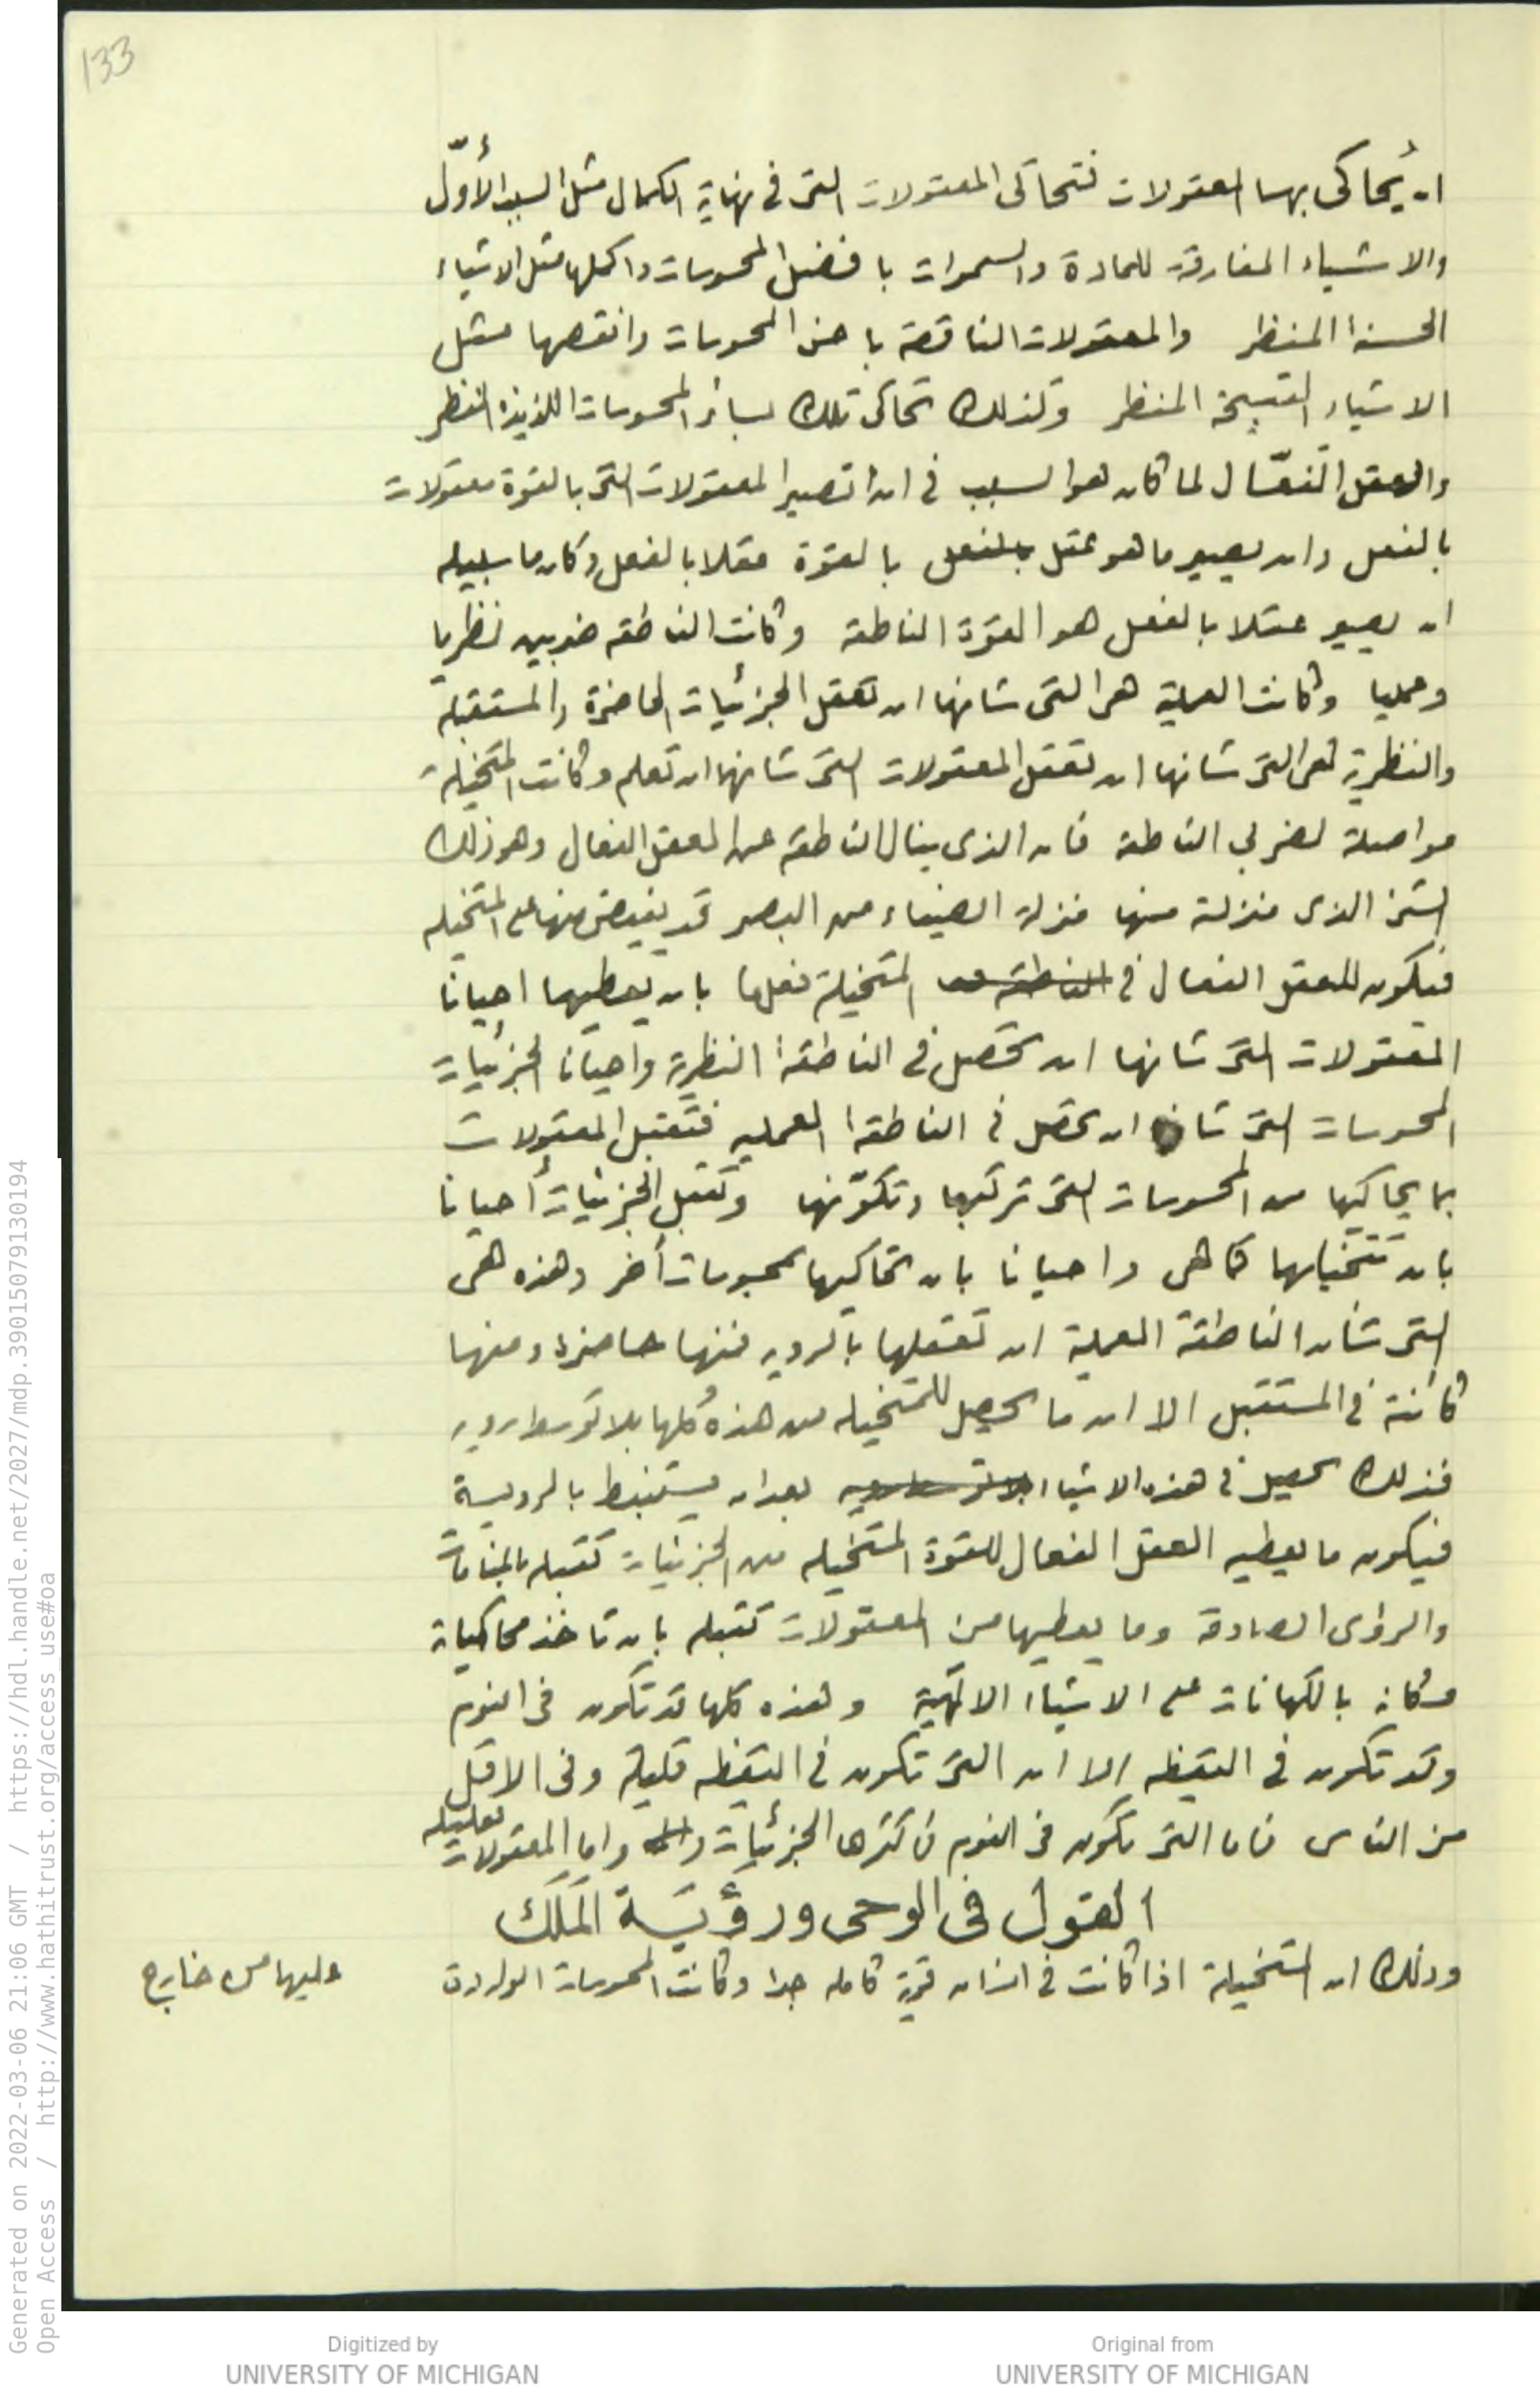 133
ان يُحاكى بها المعقولات فتحاكى المعقولات التى فى نهاية الكمال مثل السبب الأوّل
والاشياء المفارقة للمادة والسموات با فضل المحسوسات واكملها مثل الاشياء
الحسنة المنظر والمعقولات الناقصة با خس المحسوسات وانقصها مثل
الاشياء القبيحة المنظر وكذلك تحاكى تلك بسائر المحسوسات اللذيذه المنظر
والعقل الفعّال لما كان هو السبب فى ان تصير المعقولات التى بالقوة معقولات
بالفعل وان يصير ما هو عقل بالفعل بالقوة عقلا بالفعل وكان ما سبيله
ان يصير عقلا بالفعل هو القوّة الناطقة وكانت الناطقه ضربين نظريا
وعمليا وكانت العملية هى التى شانها ان تعقل الجزئيات الحاضرة والمستقبلة
والنظرية هى التى شانها ان تعقل المعقولات التى شانها ان تعلم وكانت المتخيلة
مواصلة لضربي الناطقه فان الذى ينال الناطقه عن العقل الفعال وهو ذلك
الشئ الذى منزلة منها منزلة الضياء من البصر قد يفيض منها على المتخيله
فيكون للعقل الفعال فى الناطقه المتخيلة فعلها بان يعطيها احيانا
المعقولات التى شانها ان تحصل فى الناطقة النظرية واحيانا الجزئيات
المحسوسات التى شانها ان تحصل فى الناطقة العمليه فتقبل المعقولات
بما يحاكيها من المحسوسات التى تركبها وتكوّنها وتقبل الجزئيات أحيانا
بان تتخيلها كما هى واحيانا بان تحاكيها بمحسوسات أخر وهذه هى
التى شان الناطقة العملية ان تعقلها بالرويه فمنها حاضرة ومنها
كائنة فى المستقبل الا ان ما يحصل للمتخيله من هذه كُلها بلا توسط رويه
فذلك يحصل فى هذه الاشياء بعد ان يستنبط بالروية
فيكون ما يعطيه العقل الفعال للقوة المتخيله من الجزئيات تقبله بالمنامات
والرؤى الصادقة وما يعطيها من المعقولات تقبله بان تاخذ محاكياة
مكانه بالكهانات على الاشياء الالهية وهذه كلها قد تكون فى النوم
وقد تكون فى اليقظه الا ان التى تكون فى اليقظه قليلة وفى الاقل
من الناس فاما التى تكون فى النوم فاكثرها الجزئيات واما المعقولات فقليله
القول فى الوحى ورؤيَة المَلَك
وذلك ان المتخيلة اذا كانت فى انسان قوية كامله جدا وكانت المحسوسات الواردة عليها من خارج
Generated on 2022-03-06 21:06 GMT / https://hdl.handle.net/2027/mdp.39015079130194
Open Access / http://www.hathitrust.org/access_use#oa
Digitized by
UNIVERSITY OF MICHIGAN
Original from
UNIVERSITY OF MICHIGAN